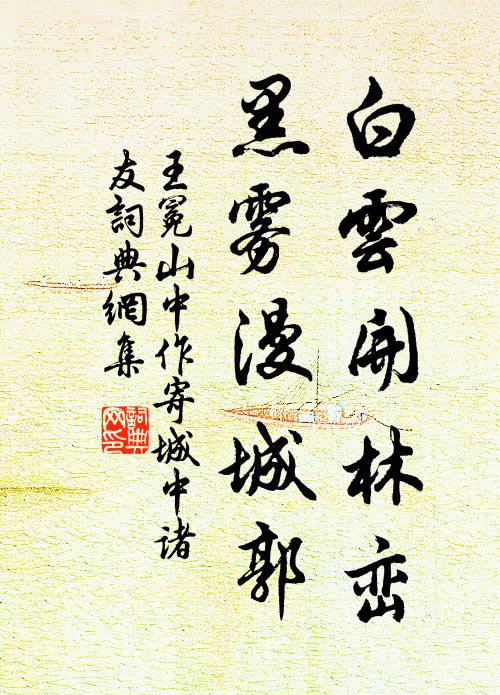 白雲開林巒
黑雾漫城郭
王冕山中作寄城中诸
友詞典網集
詞典
网印